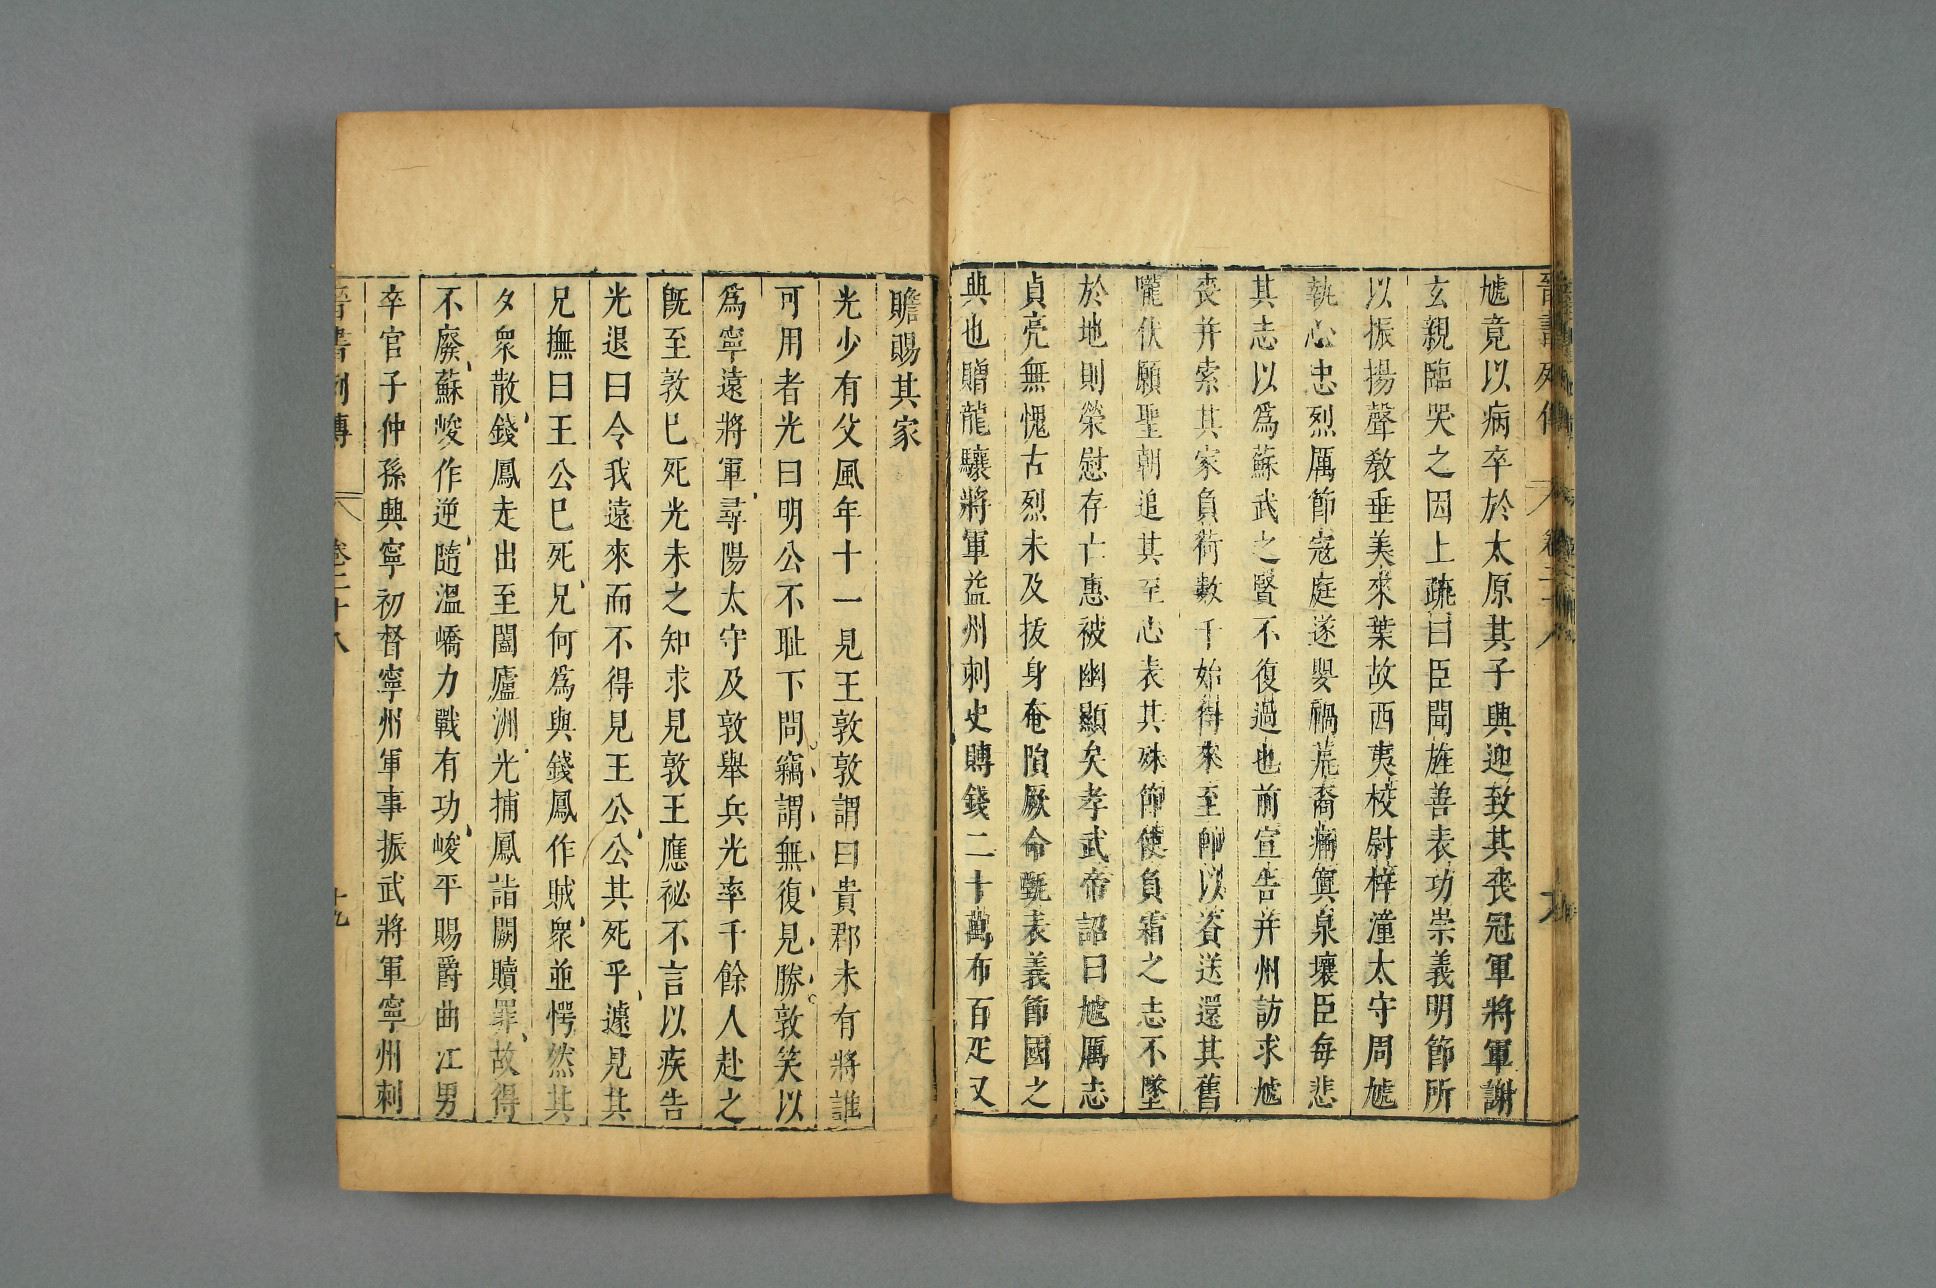 晉書列傳 卷二十八
虓竟以病卒於太原其子興迎致其喪冠軍將軍謝
玄親臨哭之因上疏曰臣聞旌善表功崇義明節所
以振揚聲教垂美來葉故西夷校尉梓潼太守周虓
執心忠烈厲節寇庭遂嬰禍荒裔痛窴泉壤臣每悲
其志以爲蘇武之賢不復過也前宣告并州訪求虓
喪并索其家負荷數千始得來至卽以資送還其舊
隴伏願聖朝追其至心表其殊節使負霜之志不墜
於地則榮慰存亡惠被幽顯矣孝武帝詔曰虓厲志
貞亮無愧古烈未及拔身奄隕厥命甄表義節國之
典也贈龍驤將軍益州刺史賻錢二十萬布百疋又
贍賜其家
光少有父風年十一見王敦敦謂曰貴郡未有將誰
可用者光曰明公不恥下問竊謂無復見勝敦笑以
爲寧遠將軍尋陽太守及敦舉兵光率千餘人赴之
旣至敦已死光未之知求見敦王應祕不言以疾告
光退曰令我遠來而不得見王公公其死乎遽見其
兄撫曰王公已死兄何爲與錢鳳作賊衆並愕然其
夕衆散錢鳳走出至闔廬洲光捕鳳詣闕贖罪故得
不廢蘇峻作逆隨溫嶠力戰有功峻平賜爵曲江男
卒官子仲孫興寧初督寧州軍事振武將軍寧州刺
晉書列傳 卷二十八 十九